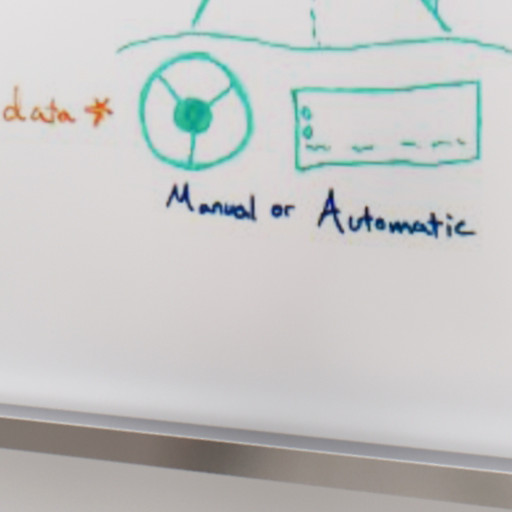 data *
Manual or Automatic